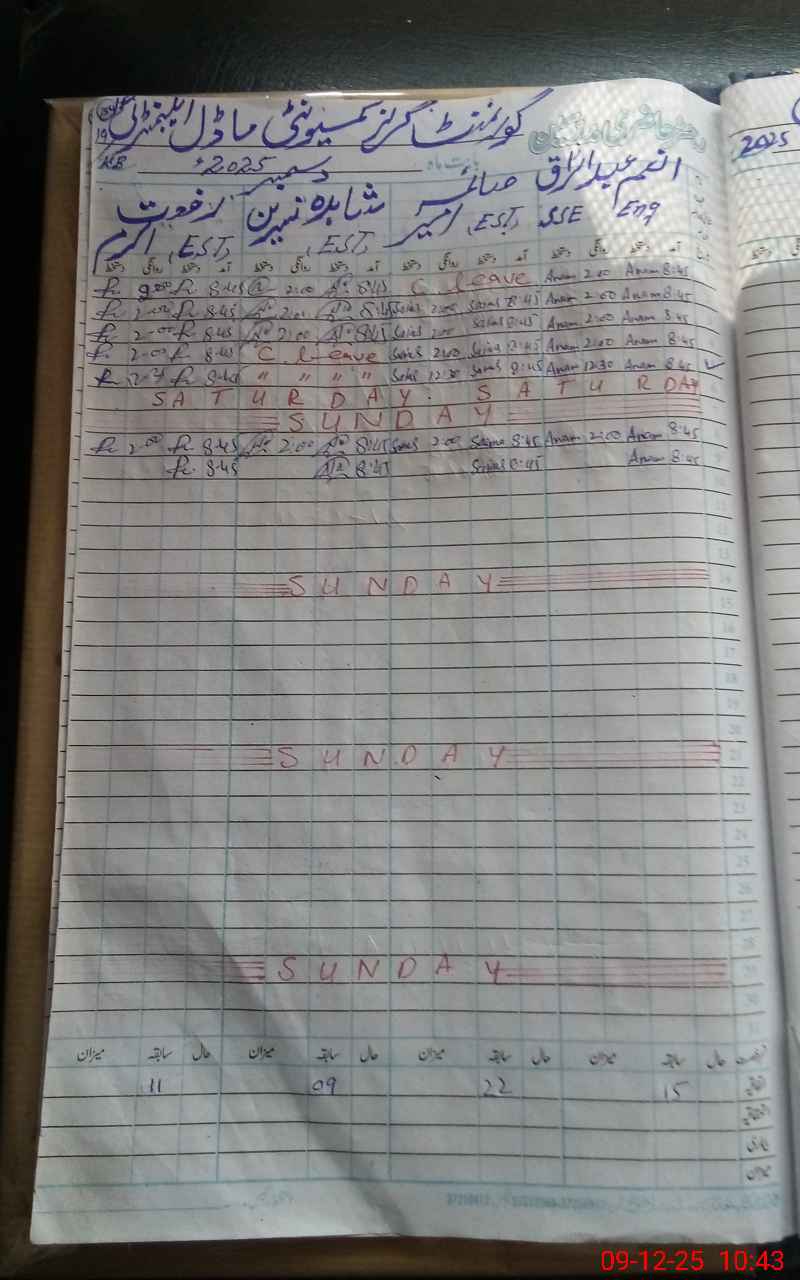 گورنمنٹ گرلز کمیونٹی ماڈل ایلیمنٹری
دسمبر 2025ء
2025
انعم عبدالرزاق صائمہ امیر شاہدہ نسرین رفعت اکرم
SSE Eng (EST) (EST) (EST)
2:00 8:45 2:00 8:45 C leave Anam 2:00 Anam 8:45
2:00 8:45 2:00 8:45 Saima 2:00 Saima 8:45 Anam 2:00 Anam 8:45
2:00 8:45 2:00 8:45 Saima 2:00 Saima 8:45 Anam 2:00 Anam 8:45
2:00 8:45 C leave Saima 2:00 Saima 8:45 Anam 2:00 Anam 8:45
8:45 " " " " Saima 12:30 Saima 8:45 Anam 12:30 Anam 8:45
SATURDAY. SATURDAY
SUNDAY
2:00 8:45 2:00 8:45 Saima 2:00 Saima 8:45 Anam 2:00 Anam 8:45
8:45 8:45 Saima 8:45 Anam 8:45
SUNDAY 14
15
16
17
18
19
20
SUNDAY 21
22
23
24
25
26
27
28
SUNDAY
30
حال سابقہ میزان حال سابقہ میزان حال سابقہ میزان حال سابقہ میزان
11 09 22 15
میزان
09-12-25 10:43